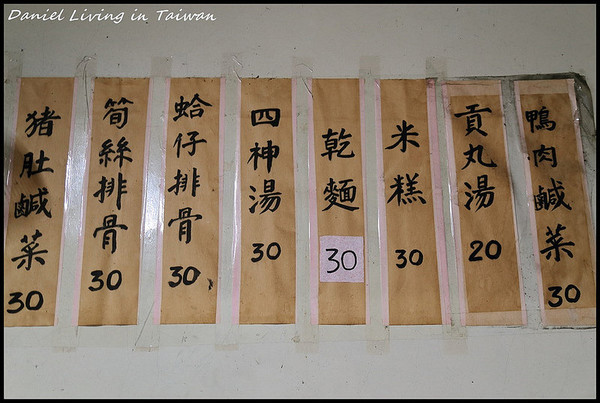 Daniel Living in Taiwan
鴨肉鹹菜
30
貢丸湯
20
米糕
30
乾麵
30
四神湯
30
蛤仔排骨
30
筍絲排骨
30
豬肚鹹菜
30